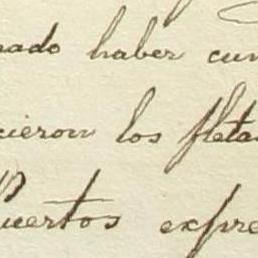 nado haber cum
cieron los fleta
Puertos expre